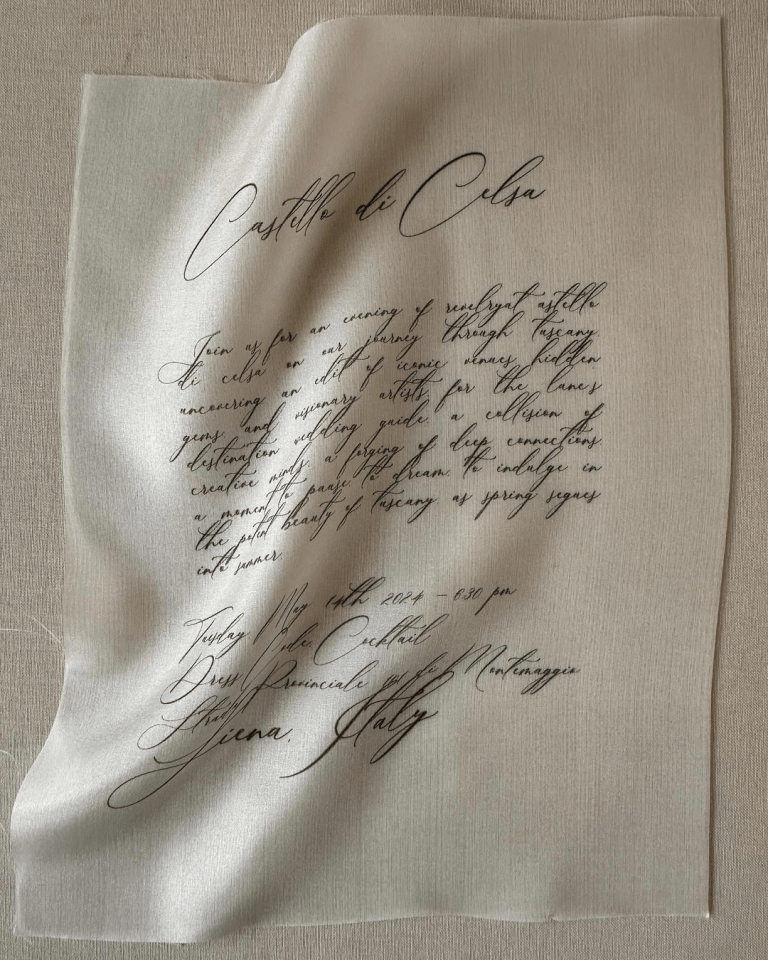 Castello di Celsa
Join us for an evening of revelryat astello
di celsa on our journey through tuscany.
uncovering an edit of iconic venues hidden
gems and visionary artists. for the lane's
destination wedding guide. a collision of
creative minds. a forging of deep connections.
a moment to pause. to dream. to indulge in
the potent beauty of tuscany. as spring segues
into summer.
Tuesday May 14th 2024 - 630 pm
Dress Code. Cocktail
Strada Provinciale di Montemaggio
Siena. Italy